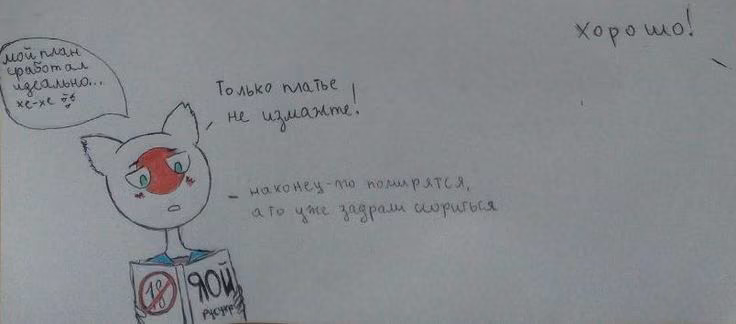 Хорошо!
мой план
сработал
идеально...
хе-хе
Только платье
не измажте!
- наконец-то помирятся,
а то уже задрали ссориться
18
ЯОЙ